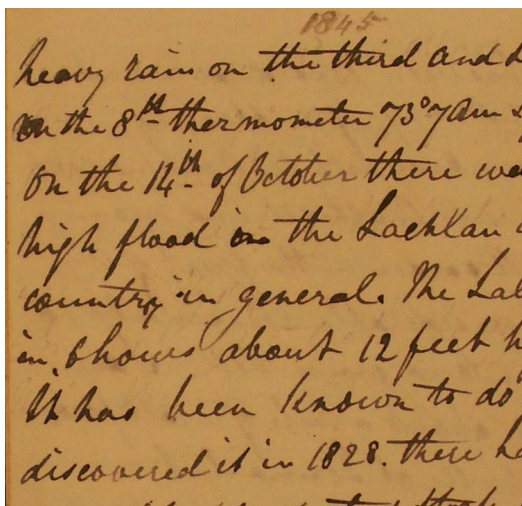 1845
heavy rain on the third and
on the 8th thermometer 73° 7 am
On the 14th of October there
high flood in the Lachlan
country in general. The
in 6 hours about 12 feet
It has been known to do
discovered it in 1828. there